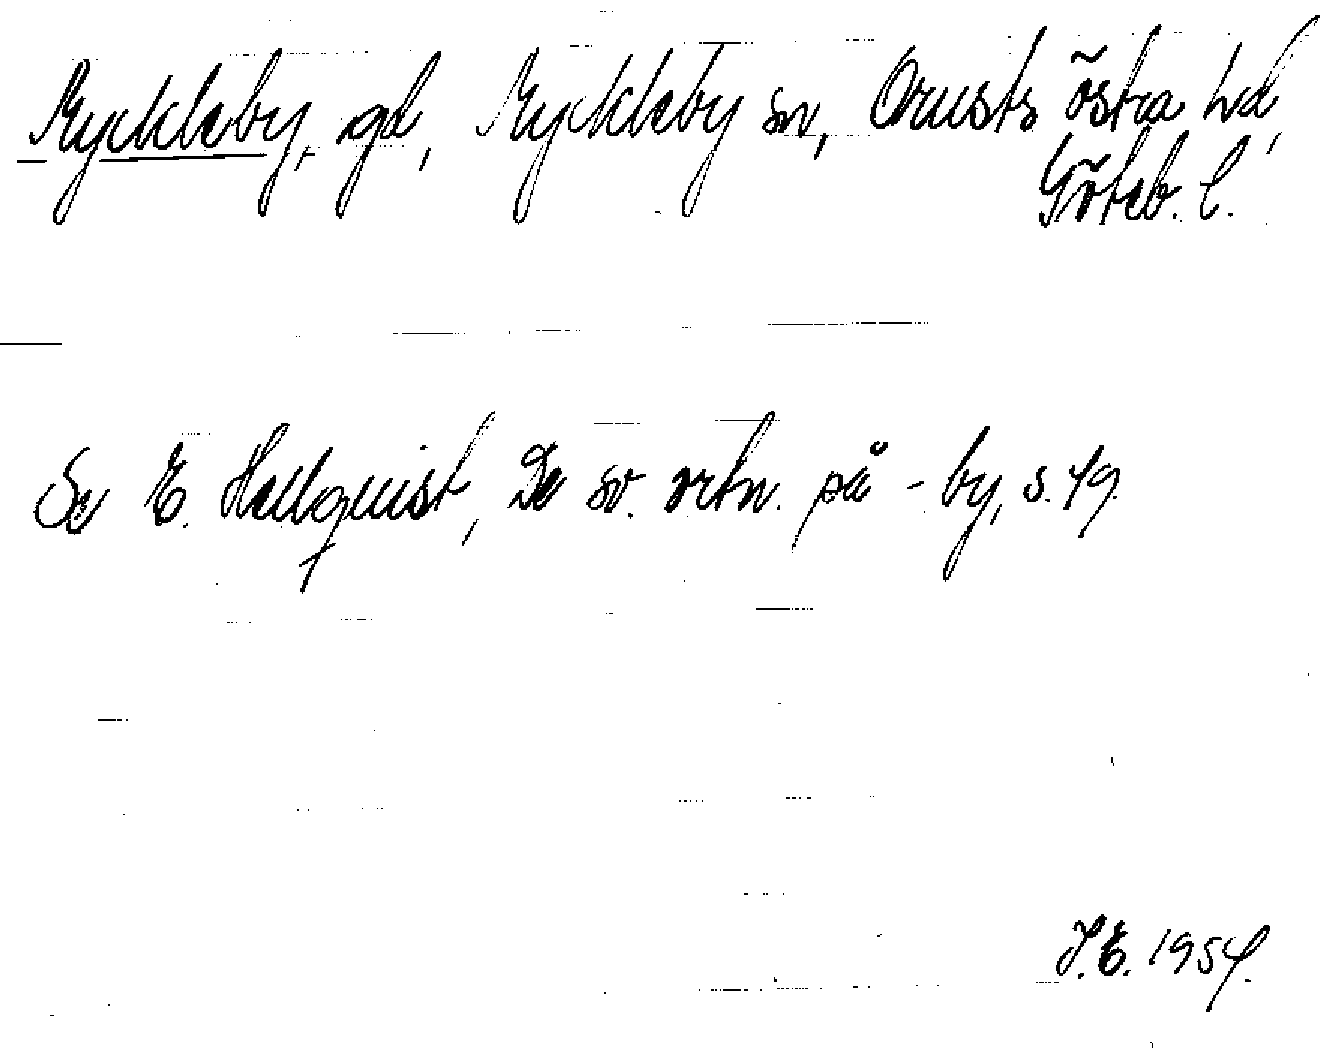 Myckleby, gd, Myckleby sn, Orusts östra hd,
Göteb. l.
Se E. Hellquist, De sv. ortn. på -by, s. 49.
J.E. 1954.